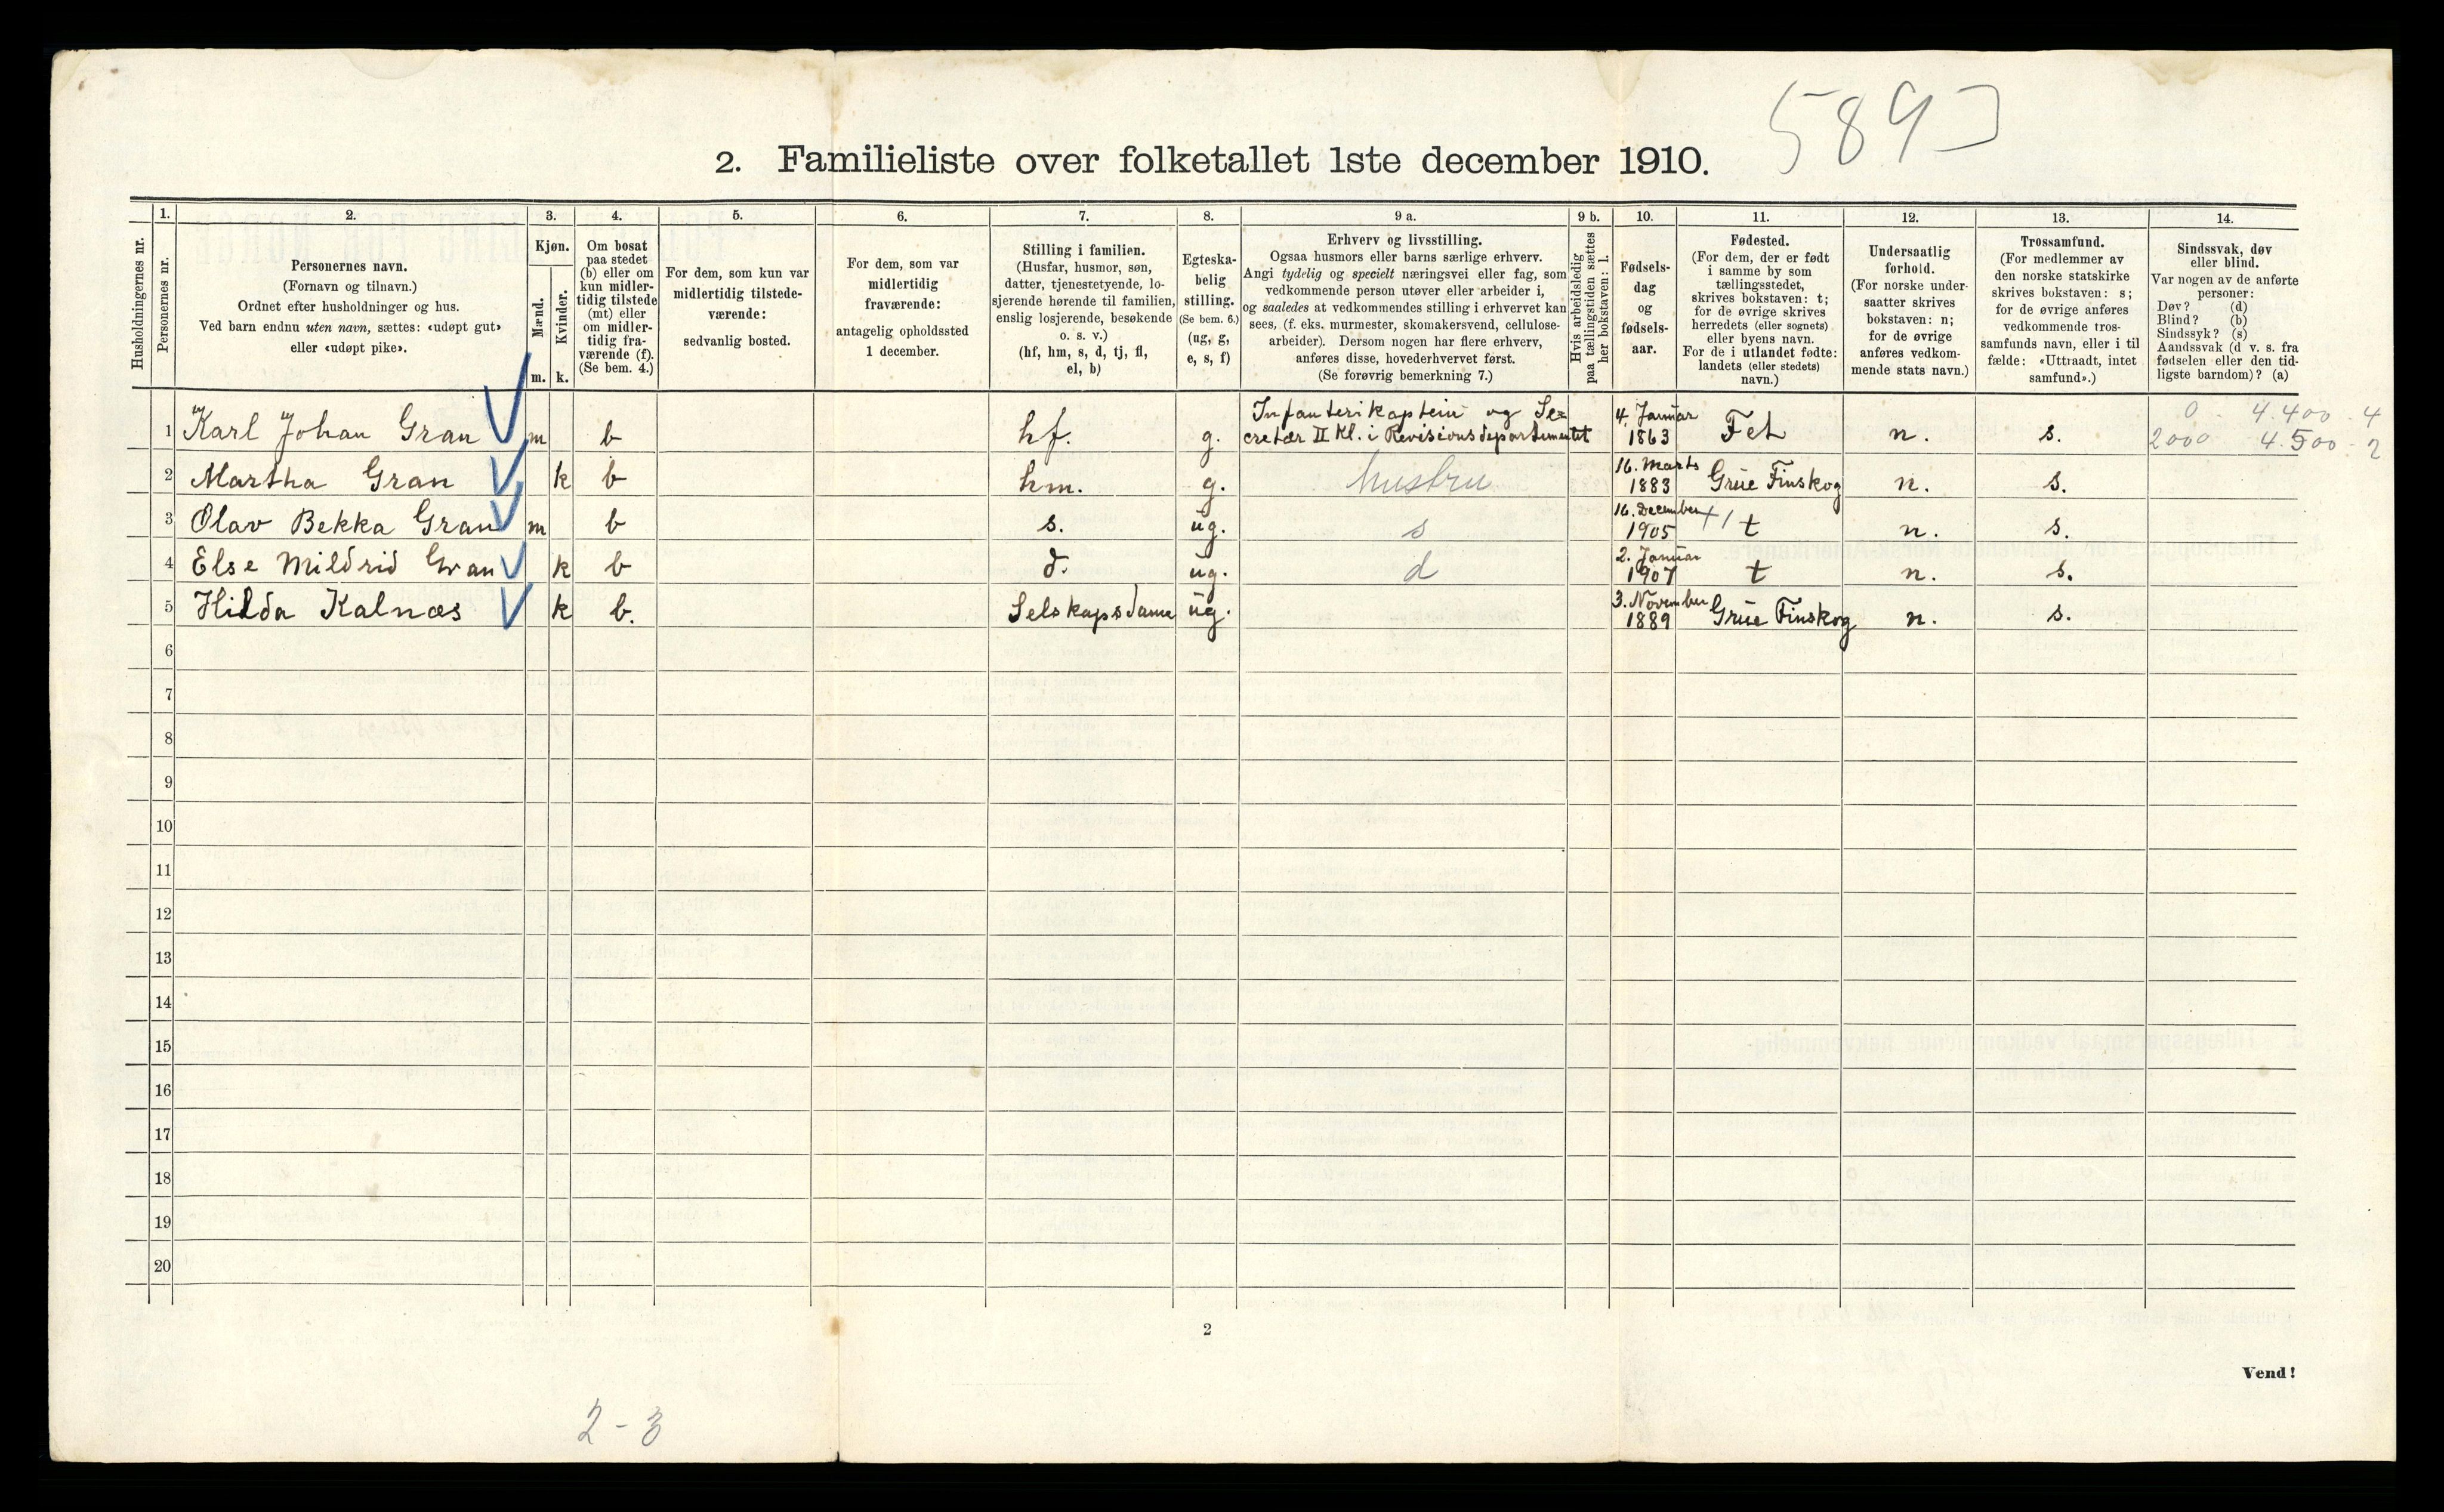 5893
2. Familieliste over folketallet 1ste december 1910.
Husholdningernes nr.
1.
Personernes nr.
2.
Personernes navn.
(Fornavn og tilnavn.)
Ordnet efter husholdninger og hus.
Ved barn endnu uten navn, sættes: «udøpt gut»
eller «udøpt pike».
3.
Kjøn.
Mænd.
Kvinder.
m. k.
4.
Om bosat
paa stedet
(b) eller om
kun midler-
tidig tilstede
(mt) eller
om midler-
tidig fra-
værende (f).
(Se bem. 4.)
5.
For dem, som kun var
midlertidig tilstede-
værende:
sedvanlig bosted.
6.
For dem, som var
midlertidig
fraværende:
antagelig opholdssted
1 december.
7.
Stilling i familien.
(Husfar, husmor, søn,
datter, tjenestetyende, lo-
sjerende hørende til familien,
enslig losjerende, besøkende
o. s. v.)
(hf, hm, s, d, tj, fl,
el, b)
8.
Egteska-
belig
stilling.
(Se bem. 6.)
(ug, g,
e, s, f)
9 a.
Erhverv og livsstilling.
Ogsaa husmors eller barns særlige erhverv.
Angi tydelig og specielt næringsvei eller fag, som
vedkommende person utøver eller arbeider i,
og saaledes at vedkommendes stilling i erhvervet kan
sees, (f. eks. murmester, skomakersvend, cellulose-
arbeider). Dersom nogen har flere erhverv,
anføres disse, hovederhvervet først.
(Se forøvrig bemerkning 7.)
9 b.
Hvis arbeidsledig
paa tællingstiden sættes
her bokstaven: l.
10.
Fødsels-
dag
og
fødsels-
aar.
11.
Fødested.
(For dem, der er født
i samme by som
tællingsstedet,
skrives bokstaven: t;
for de øvrige skrives
herredets (eller sognets)
eller byens navn.
For de i utlandet fødte:
landets (eller stedets)
navn.)
12.
Undersaatlig
forhold.
(For norske under-
saatter skrives
bokstaven: n;
for de øvrige
anføres vedkom-
mende stats navn.)
13.
Trossamfund.
(For medlemmer av
den norske statskirke
skrives bokstaven: s;
for de øvrige anføres
vedkommende tros-
samfunds navn, eller i til
fælde: «Uttraadt, intet
samfund».)
14.
Sindssvak, døv
eller blind.
Var nogen av de anførte
personer:
Døv? (d)
Blind? (b)
Sindssyk? (s)
Aandssvak (d v. s. fra
fødselen eller den tid-
ligste barndom)? (a)
1 Karl Johan Gran m b hf. g. Infanterikaptein og Se=
cretær II Kl. i Revisionsdepartementet 4. Januar
1863 Fet n. s. 0 4.400 - 4
2000 4.500 - 2
2 Martha Gran k b hm. g. hustru 16. Marts
1883 Grue Finskog n. s.
3 Olav Bekka Gran m b s. ug. s 16. December
1905 t n. s.
4 Else Mildrid Gran k b d. ug. d 2. Januar
1907 t n. s.
5 Hilda Kalnæs k b. Selskapsdame ug. 3. November
1889 Grue Finskog n. s.
6
7
8
9
10
11
12
13
14
15
16
17
18
19
20
2
Vend!
2 - 3